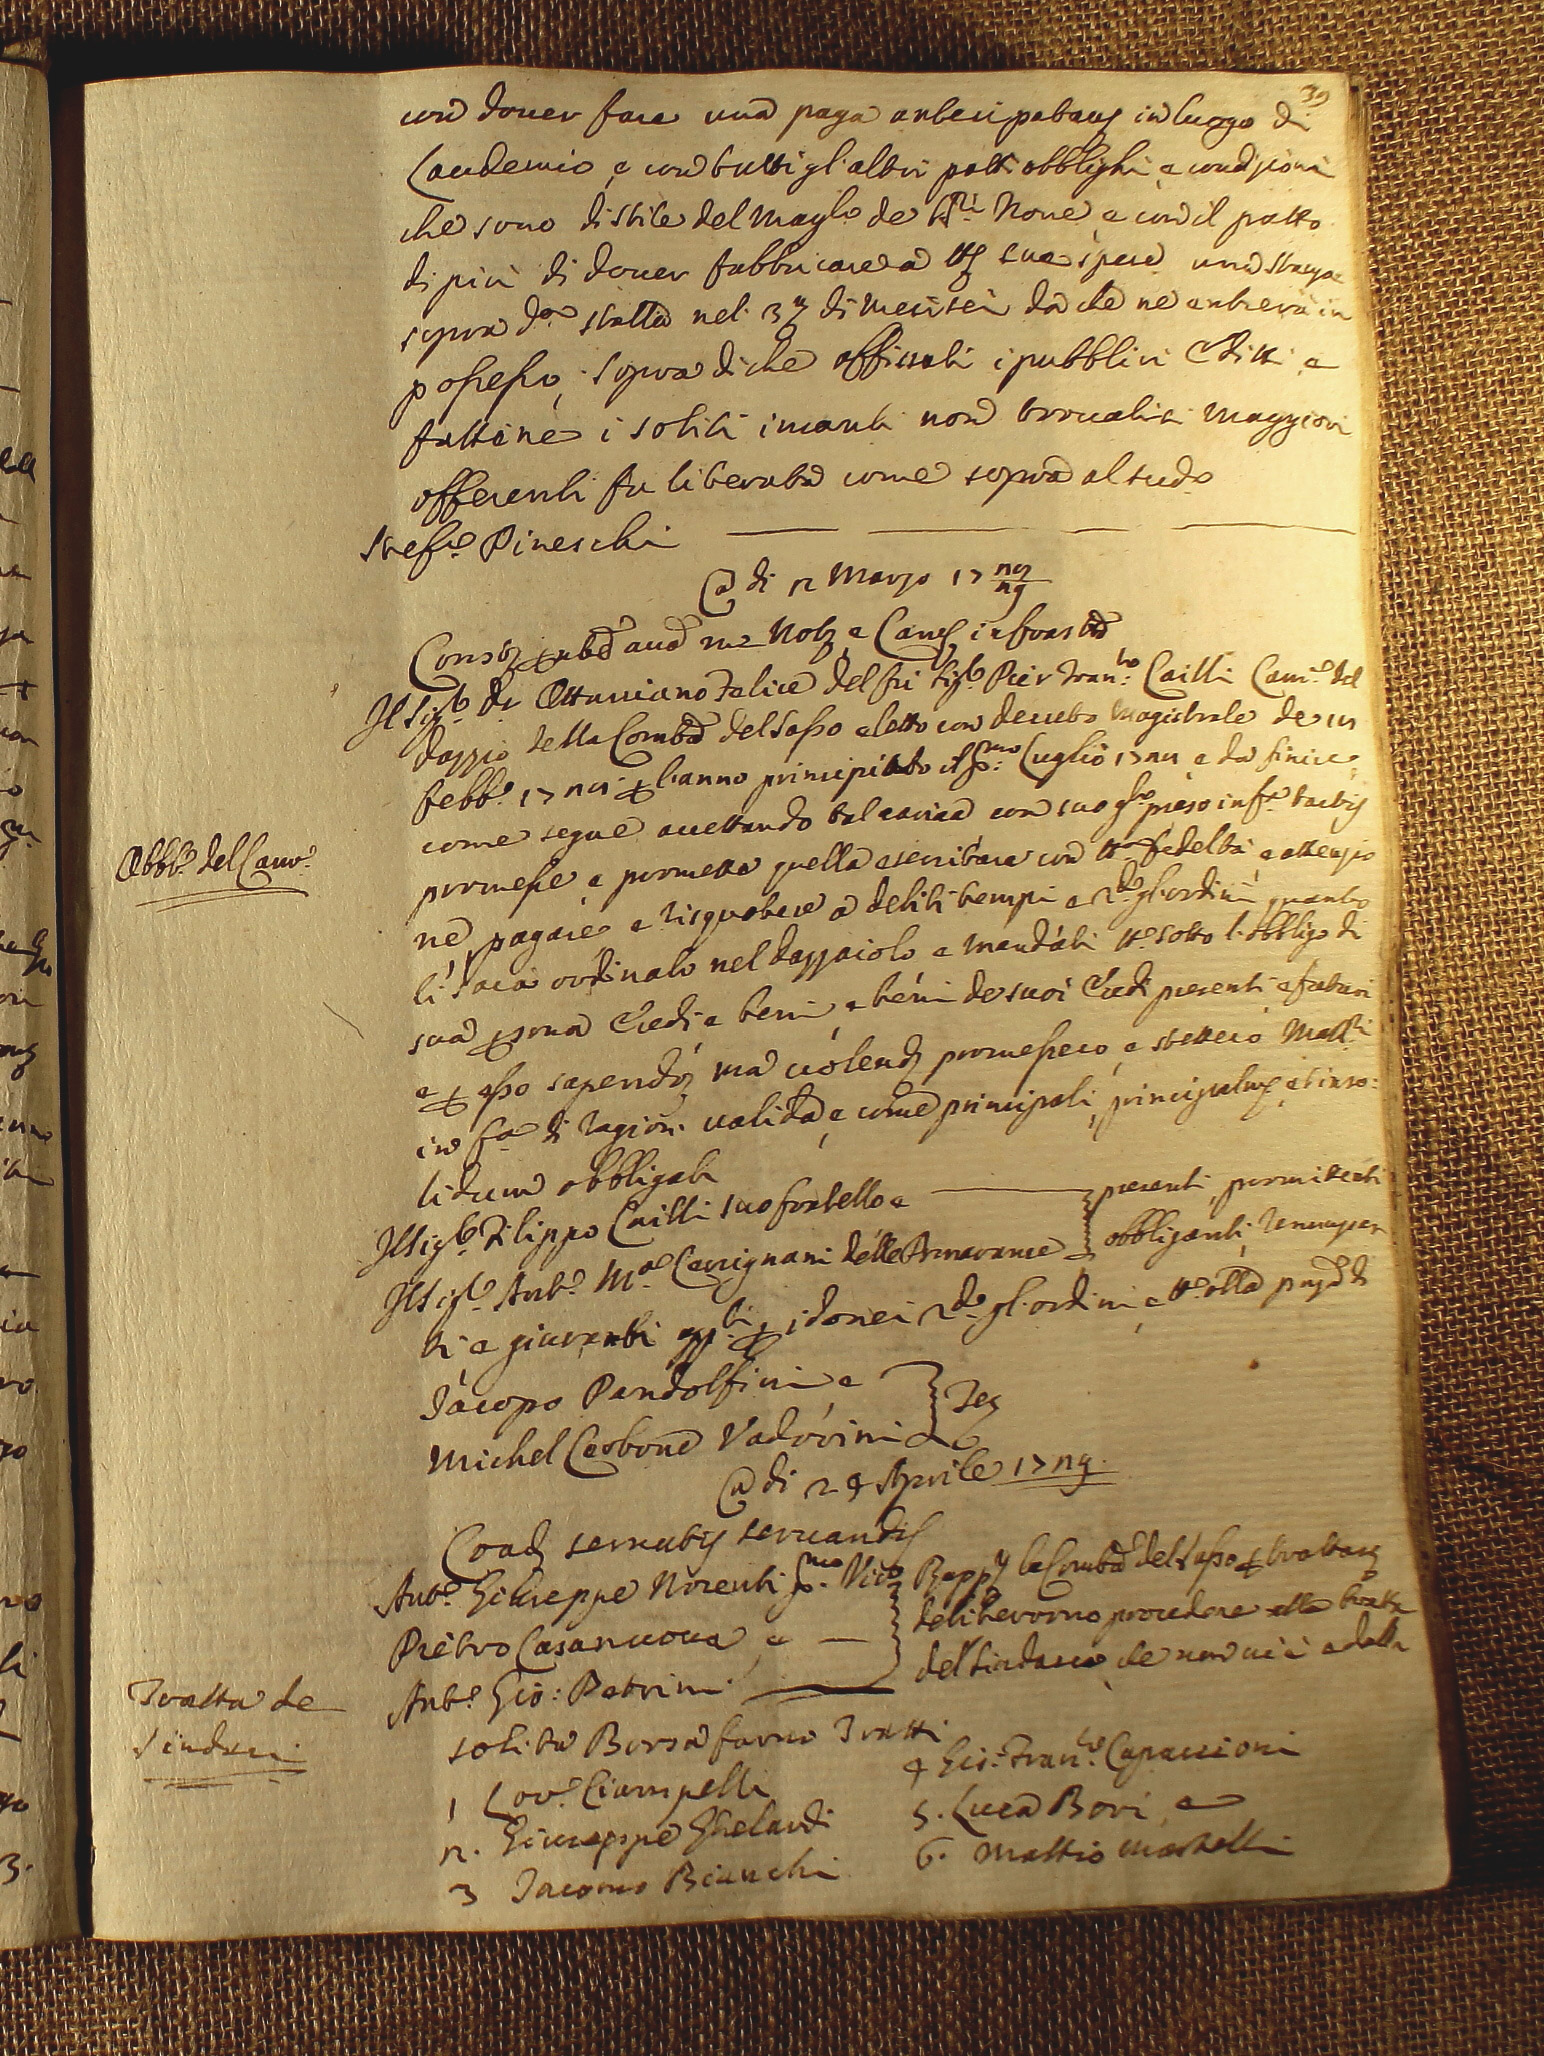 39
con dover fare una paga antecipatam in luogo di
Laudemio, e con tutti gl'altri patti obblighi, e condizioni
che sono di stile del Mag.to de SS.ri Nove, e con il patto
di più di dover fabbricare a tt sue spese una stanza
sopra d.a stalla nel 3 di mesi sei da che ne entrerà in
possesso, sopra di che affissati i pubblici Editti, e
fattine i soliti incanti non trovatisi maggiori
offerenti fu liberata come sopra al sud.o
Stef.o Pineschi
A di 12 Marzo 17
Const avd me Not e Canc infras
Il Sig.e Dr Ottaviano Felice del fu Sig.e Pier Fran.co Cailli Cam.o del
dazzio della Comtà del Sasso eletto con decreto Magistrale de
febb.o 17 l'anno principiato il p.mo Luglio 17 e da finire
come segue accettando tal carica con suo g.to preso in f.a tactis
promesse e promette quella esercitare con tt.a fedeltà, e attenzio
ne, pagare e risquotere a debiti tempi e 2.do gl'ordini quanto
li sarà ordinato nel dazzaiolo e mandati tt.o sotto l'obbligo di
sua psona Eredi e beni, e beni de suoi Eredi presenti e futuri
e p esso sapendo, ma volend promessero, e stettero Mall.ri
in f.a di ragion valida e come principali, principalm et inso:
lidum obbligati
Obbb.o del Cam.o
Il Sig.e Filippo Cailli suo fratello e — presenti, promittenti
Il Sig.e Ant.o M.a Cavignani delle obbliganti, renunzian
ti e giuranti idonei 2.do gl'ordini, e tt.o alla pnza di
Jacopo Pandolfini e
Michel Carbone Vadorini Tes
A di 24 Aprile 17
Coad servatis servandis
Ant.o Giuseppe Norenti p.mo Vic.o Rapp la Comtà del Sasso e trattand
Pietro Casanuova e — deliberorno procedere alla tratta
Ant.o Gio: Petrini del Sindaco che non vi è e dalla
Tratta de
Sindaci
solita Borsa furno Tratti
1 Lor.o Ciampelli
2. Giuseppe Ghelardi
3 Jacomo Bianchi
4 Gio: Fran.co Capaccioni
5. Luca Bovi e
6. Mattio Martelli